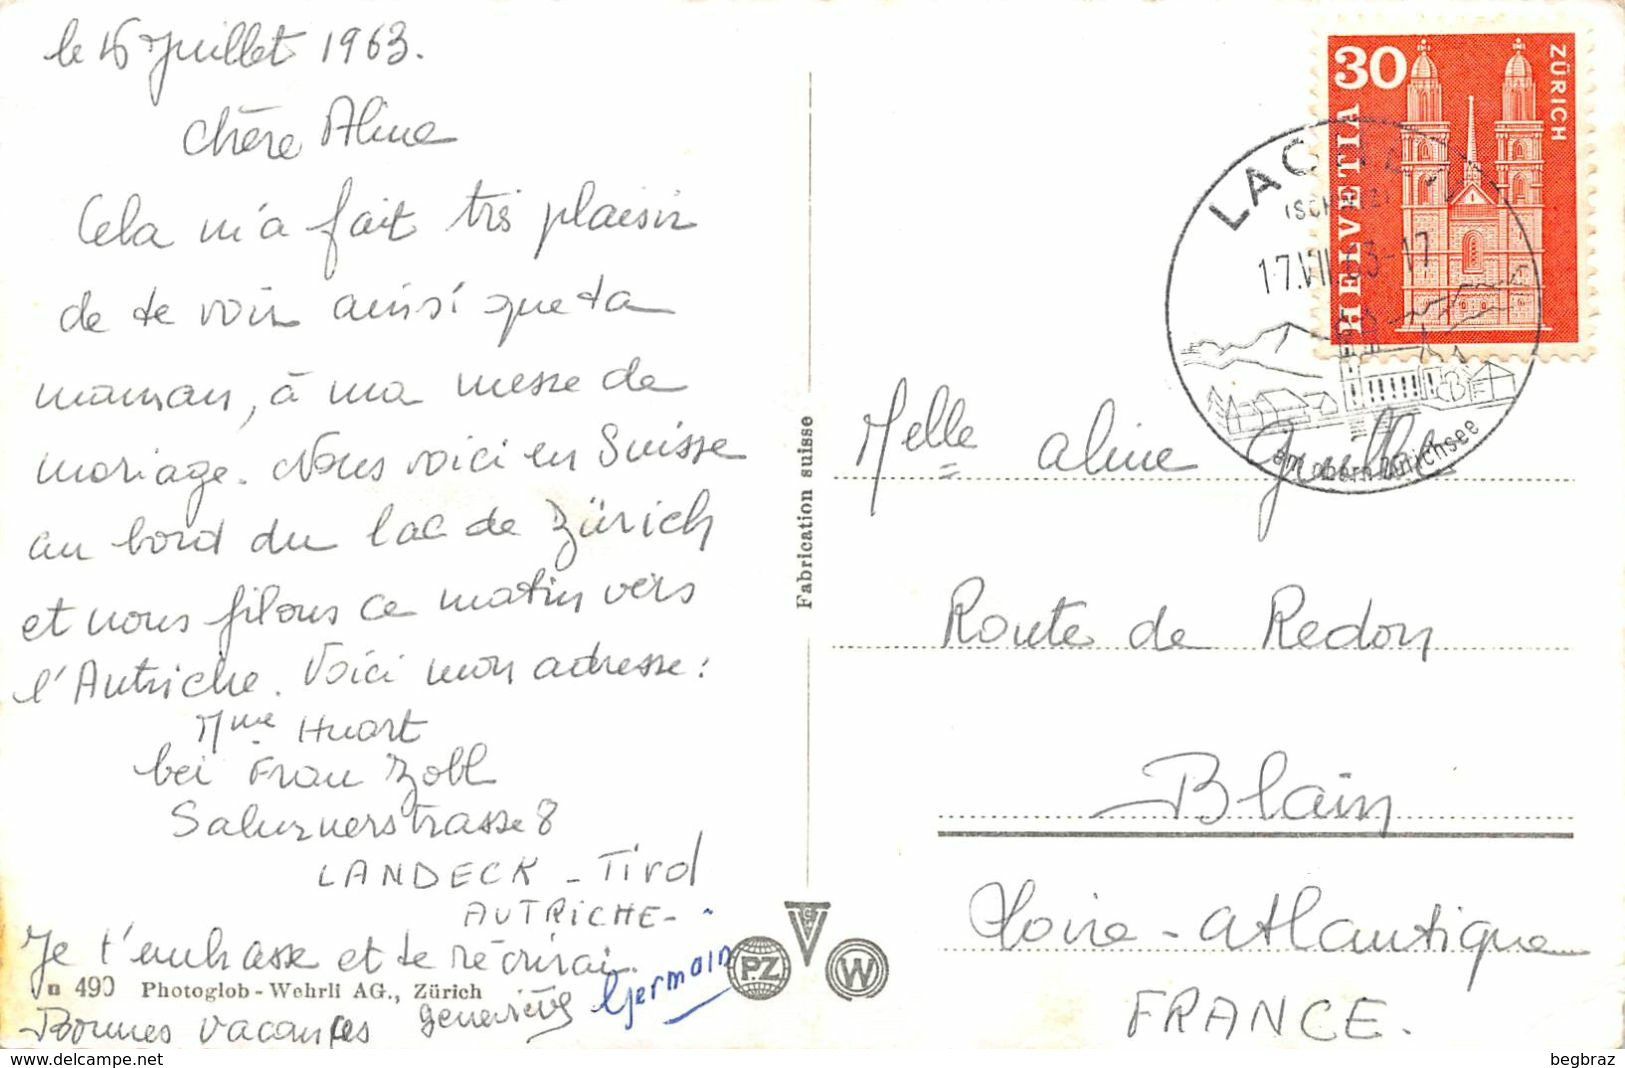 le 16 Juillet 1963.
Chère Aline
Cela m'a fait très plaisir
de te voir ainsi que ta
maman, à ma messe de
mariage. Nous voici en Suisse
au bord du lac de Zürich
et nous filons ce matin vers
l'Autriche. Voici mon adresse:
Mme Huart
bei Frau Zobl
Salurnerstrasse 8
LANDECK - Tirol
AUTRICHE-
Je t'embrasse et te récrirai.
490 Photoglob-Wehrli AG., Zürich
Bonnes vacances Geneviève Germain
Fabrication suisse
PZ
W
30
HELVETIA
ZÜRICH
LACHEN
(SCHWYZ)
17.VII.63-17
am obern Zürichsee
Melle Aline
Route de Redon
Blain
Loire-Atlantique
FRANCE.
www.delcampe.net
begbraz